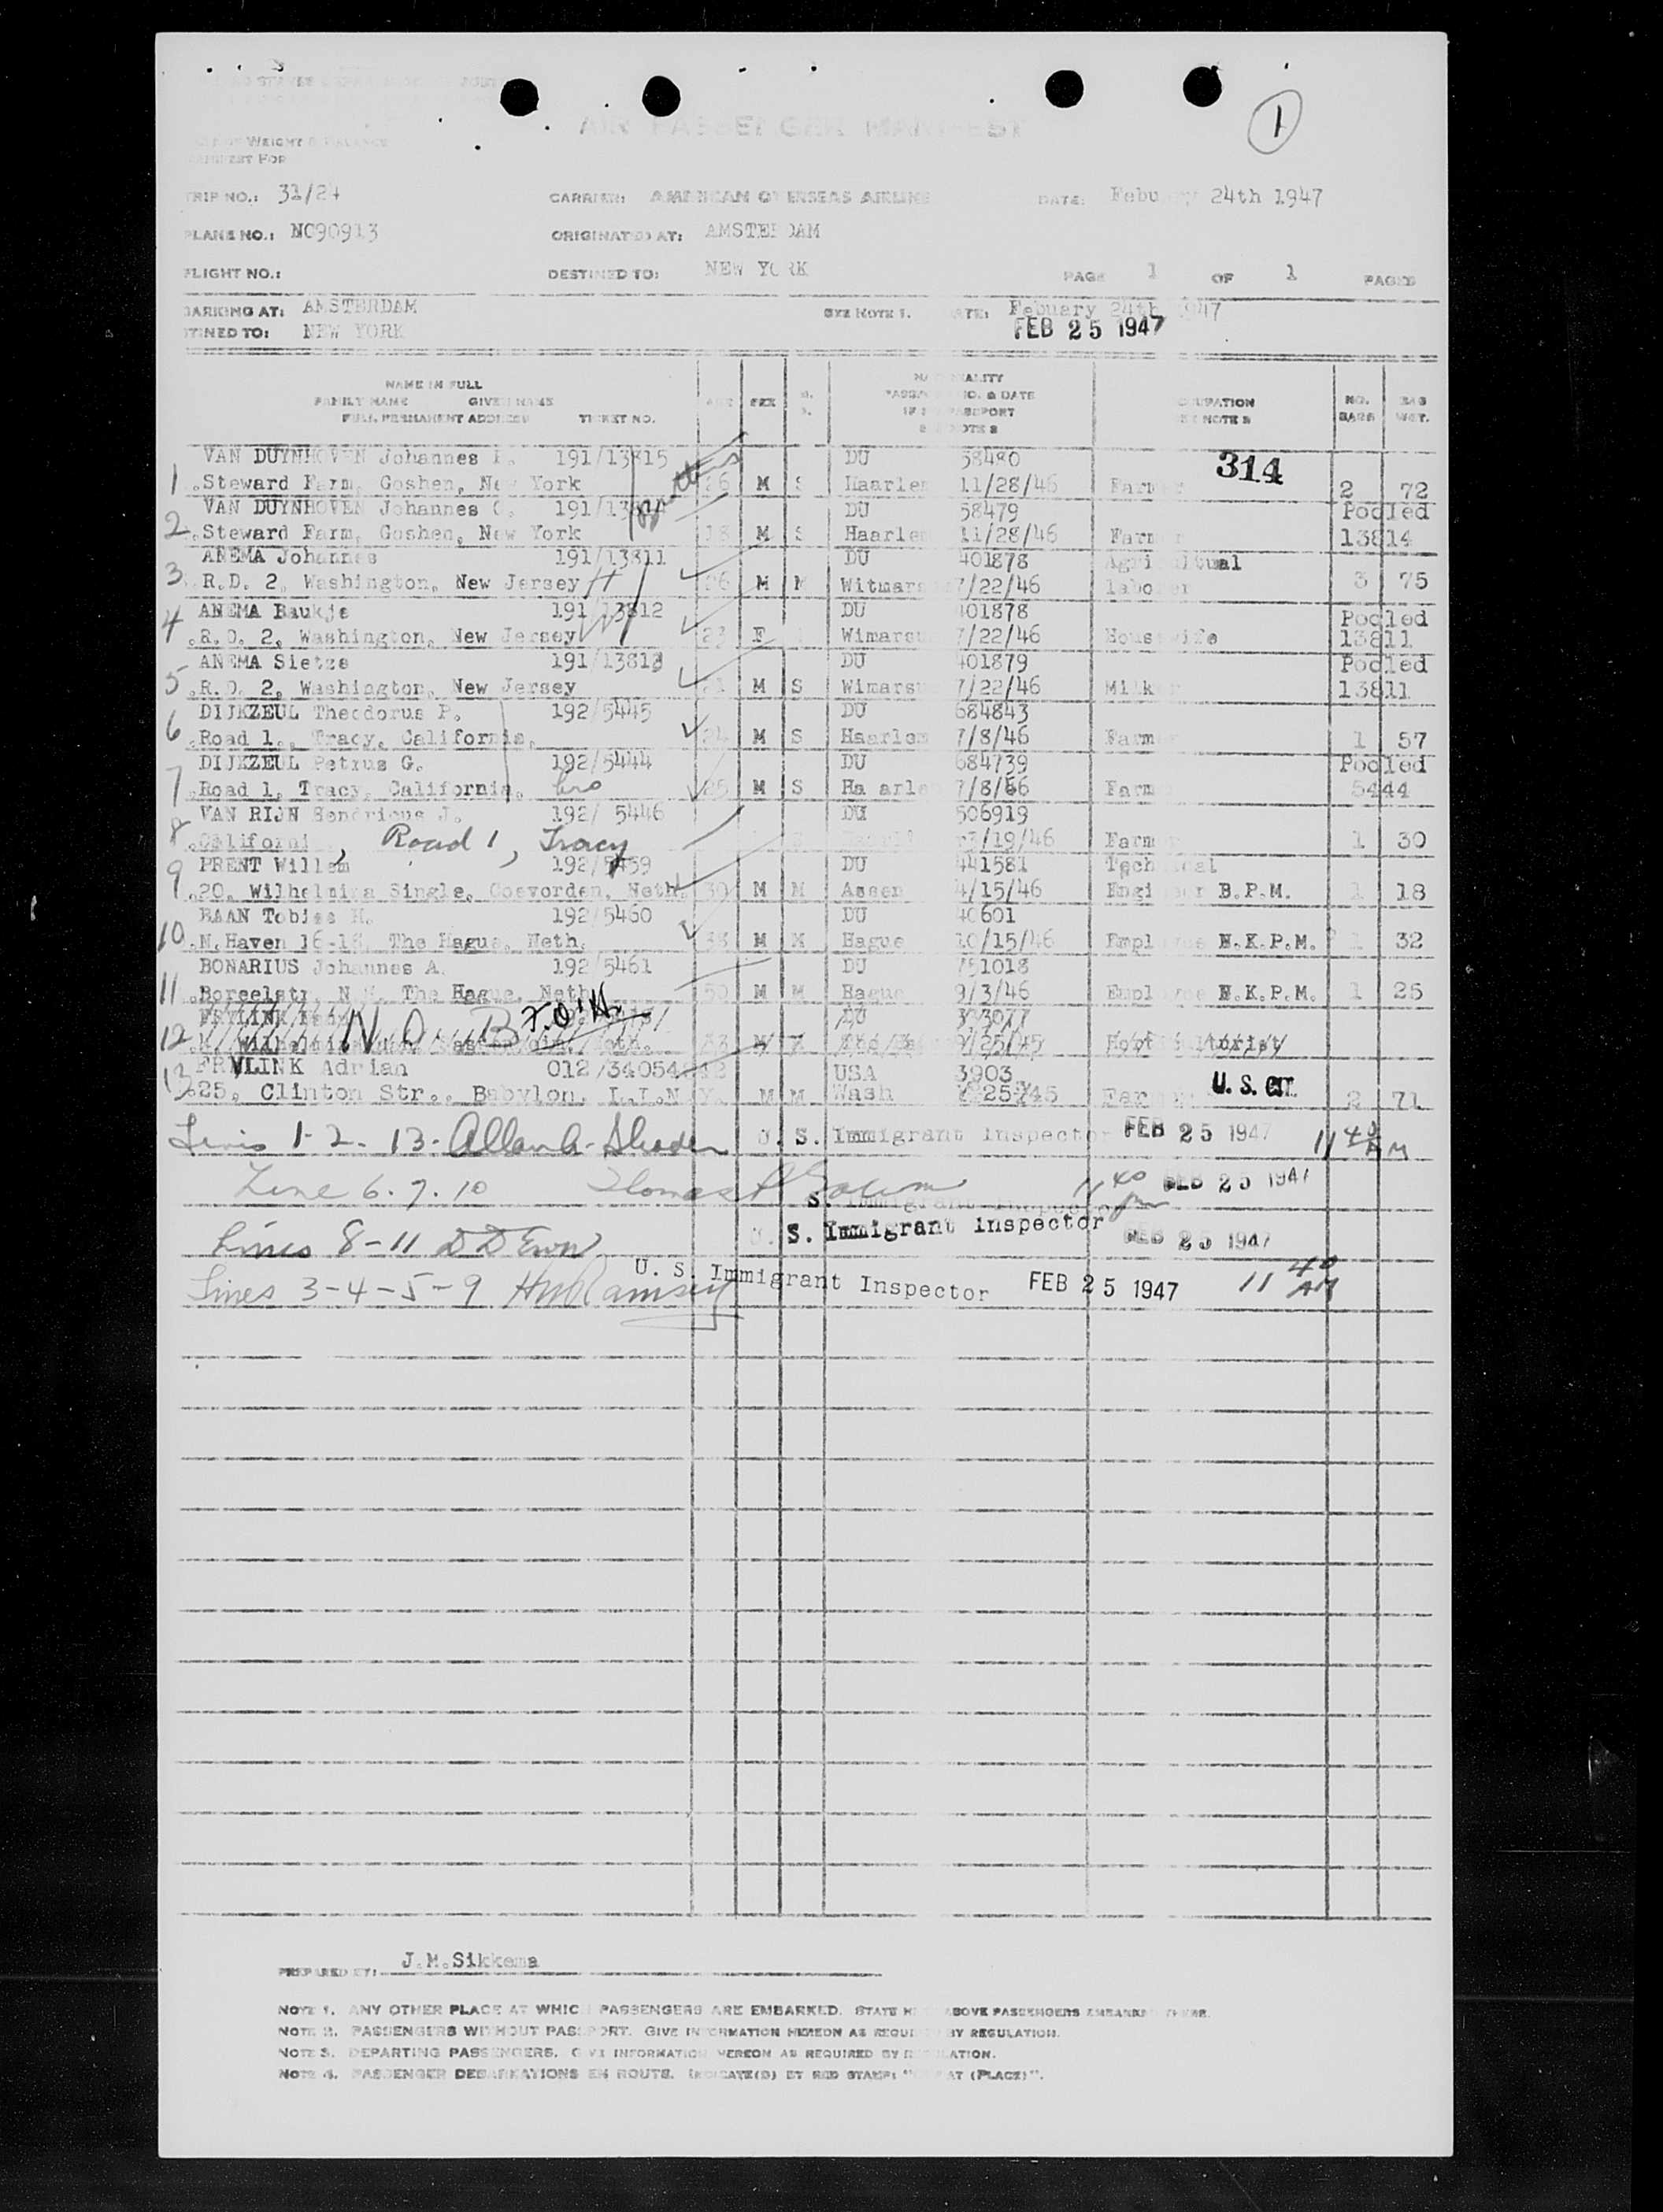 1
AIR PASSENGER MANIFEST
WEIGHT & BALANCE
MANIFEST FOR
TRIP NO.: 31/24 CARRIER: AMERICAN OVERSEAS AIRLINE DATE: Febuary 24th 1947
PLANE NO.: NC90913 ORIGINATED AT: AMSTERDAM
FLIGHT NO.: DESTINED TO: NEW YORK PAGE 1 OF 1 PAGES
BARKING AT: AMSTERDAM SEE NOTE 1. DATE: Febuary 24th 1947
TINED TO: NEW YORK FEB 25 1947
NAME IN FULL
FAMILY NAME GIVEN NAME
FULL PERMANENT ADDRESS TICKET NO. AGE SEX
NATIONALITY
PASSPORT NO. & DATE
IF NO PASSPORT
SEE NOTE 2
OCCUPATION
SEE NOTE 3
NO. BAGS
BAG WGT.
VAN DUYNHOVEN Johannes 191/13815 DU 58480 314
1 Steward Farm, Goshen, New York 26 M S Haarlem 11/28/46 Farmer 2 72
VAN DUYNHOVEN Johannes C. DU 58479 Pooled
2 Steward Farm, Goshen, New York 18 M S Haarlem 11/28/46 Farmer 13814
ANEMA Johannes 191/13811 DU 401878 Agricultual
3 R.D. 2, Washington, New Jersey 26 M M Witmars 7/22/46 laborer 3 75
ANEMA Baukje 191/13812 DU 401878 Pooled
4 R.D. 2, Washington, New Jersey 23 F Wimarsu 7/22/46 Housewife 13811
ANEMA Sietze 191/13813 DU 401879 Pooled
5 R.D. 2, Washington, New Jersey 21 M S Wimarsu 7/22/46 Milker 13811
DIJKZEUL Theodorus P. 192/5445 DU 684843
6 Road 1, Tracy, California, 24 M S Haarlem 7/8/46 Farmer 1 57
DIJKZEUL Petrus G. 192/5444 DU 684739 Pooled
7 Road 1, Tracy, California, bro 25 M S Haarlem 7/8/46 Farmer 5444
VAN RIJN Hendricus J. 192/ 5446 DU 506919
8 California, Road 1, Tracy S /19/46 Farmer 1 30
PRENT Willem 192/5459 DU 441581 Technical
9 20, Wilhelmina Single, Coevorden, Neth. 30 M M Assen 4/15/46 Engineer B.P.M. 1 18
BAAN Tobias H. 192/5460 DU 40601
10 N. Haven 16-18, The Hague, Neth. 38 M M Hague 10/15/46 Employee N.K.P.M. 1 32
BONARIUS Johannes A. 192/5461 DU 751018
11 Borselstr, The Hague, Neth. 50 M M Hague 9/3/46 Employee N.K.P.M. 1 25
FRYLINK DU 333077
12 N.O.B. 9/25/45 Horticulturist
FRYLINK Adrian 012/34054 USA 3903
13 25, Clinton Str., Babylon, L.I.N.Y. M M Wash 25 45 Farmer U.S. CIT. 2 71
Lines 1-2-13- U. S. Immigrant Inspector FEB 25 1947 11 40 AM
Line 6.7.10 Thomas S. Immigrant Inspector 11 40 FEB 25 1947
Lines 8-11 U. S. Immigrant Inspector FEB 25 1947
Lines 3-4-5-9 HM Ramsey U. S. Immigrant Inspector FEB 25 1947 11 40 AM
PREPARED BY: J.M.Sikkema
NOTE 1. ANY OTHER PLACE AT WHICH PASSENGERS ARE EMBARKED. STATE HOW ABOVE PASSENGERS EMBARKED THERE.
NOTE 2. PASSENGERS WITHOUT PASSPORT. GIVE INFORMATION HEREON AS REQUIRED BY REGULATION.
NOTE 3. DEPARTING PASSENGERS. GIVE INFORMATION HEREON AS REQUIRED BY REGULATION.
NOTE 4. PASSENGER DEBARKATIONS EN ROUTE. INDICATE(D) BY RED STAMP: " AT (PLACE)".